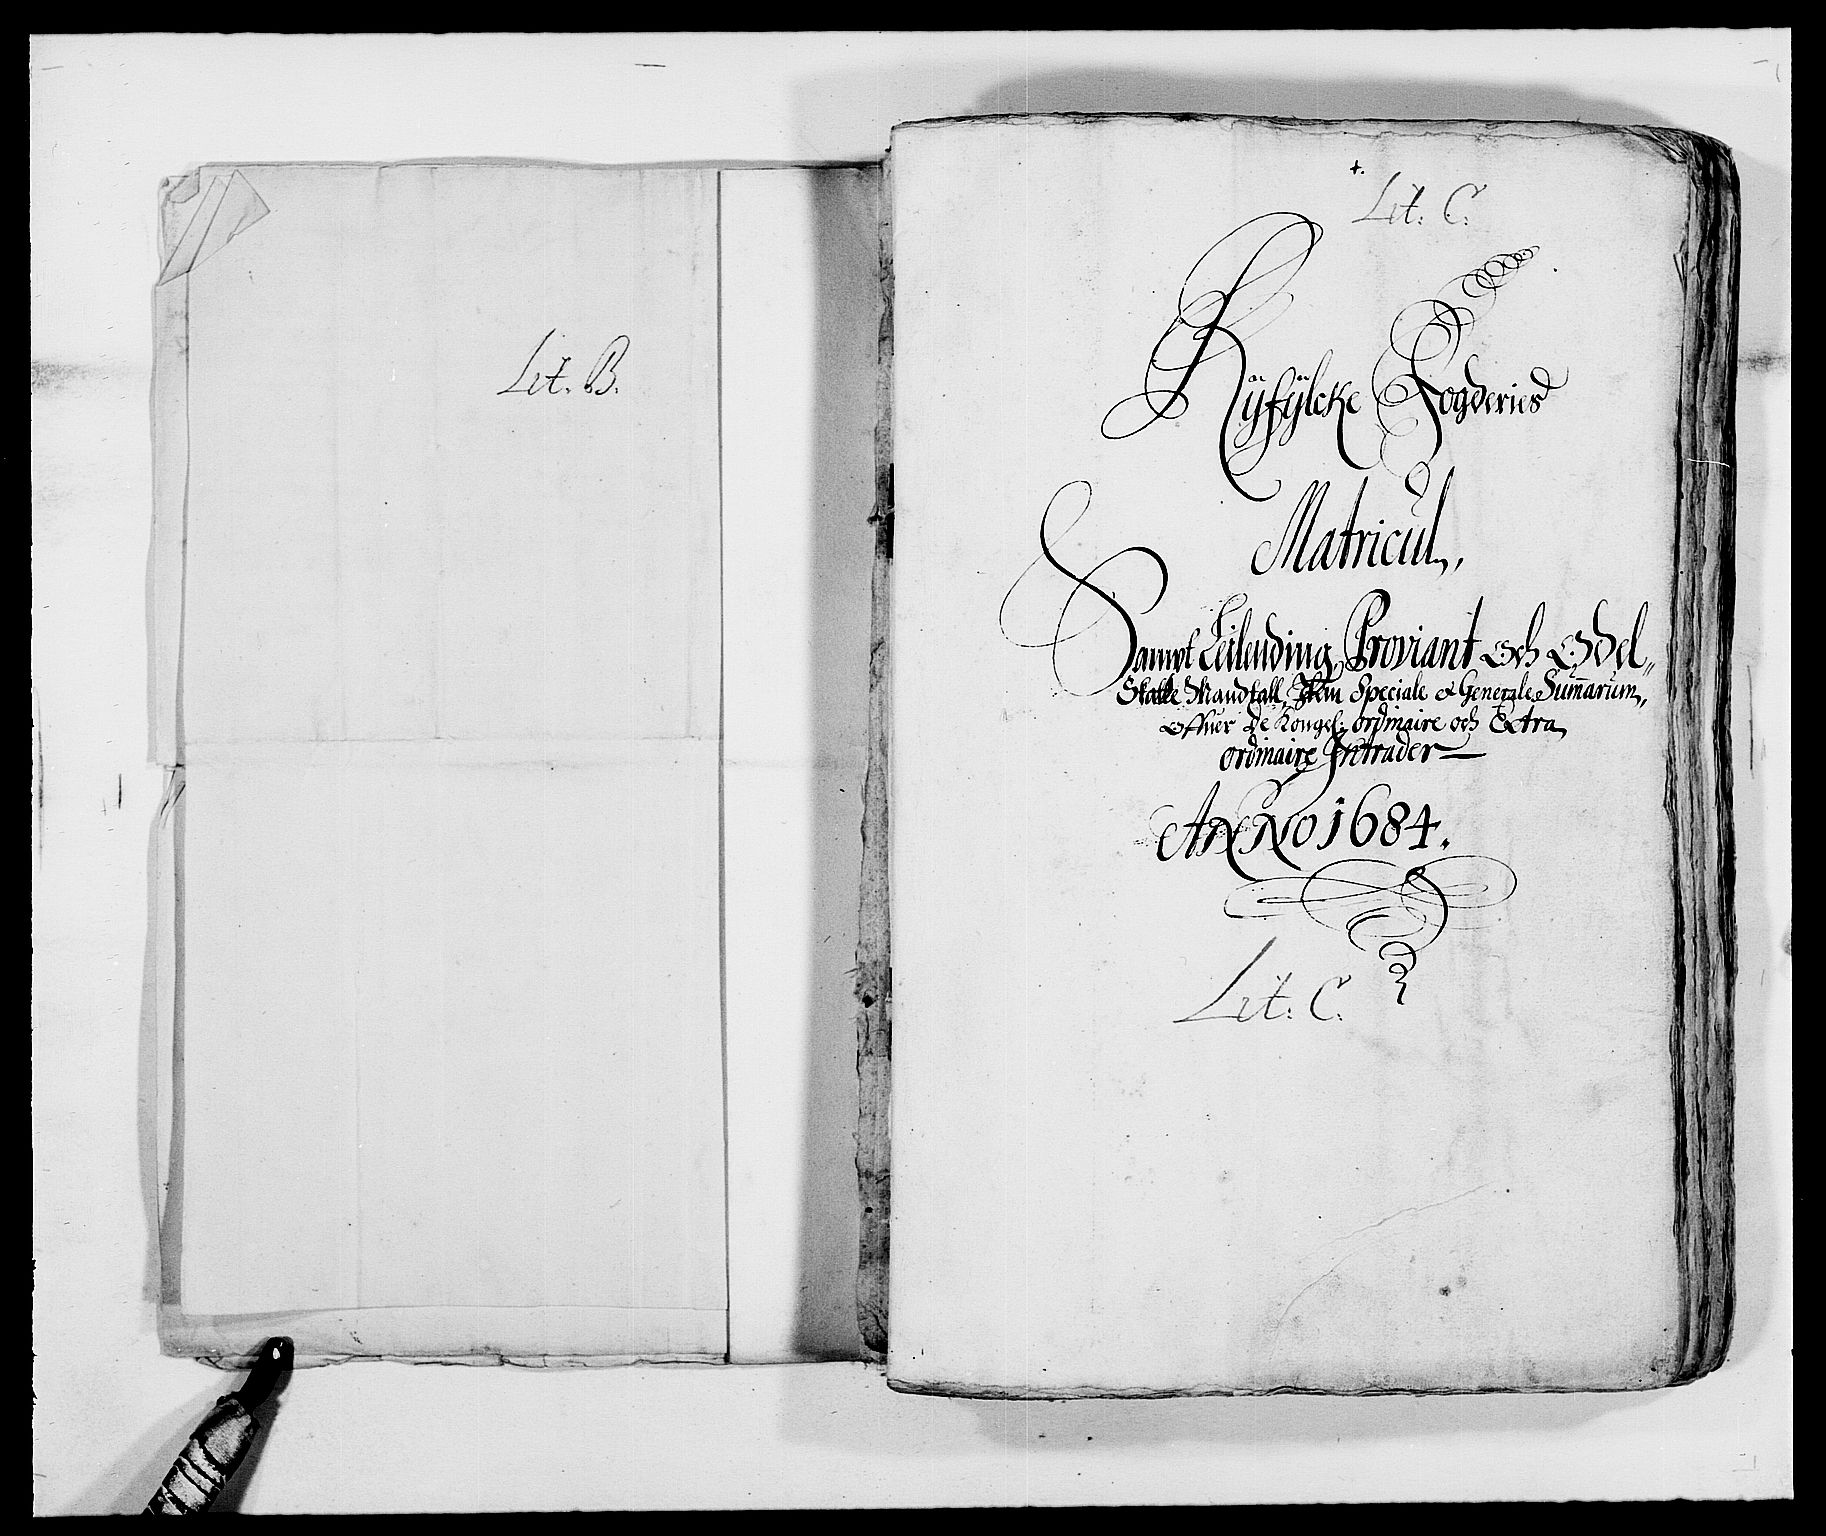 Lit. B.
Lit. C.
Ryfylcke Fogderies
Matricul,
Sampt Leilending, Proviant och Odel,,
Skatte Mandtall, Item Speciale & Generale Sum̄arum,,
Offuer De Kongel: ordinaire och Extra
ordinaire Intrader
ANNO 1684.
Lit. C.